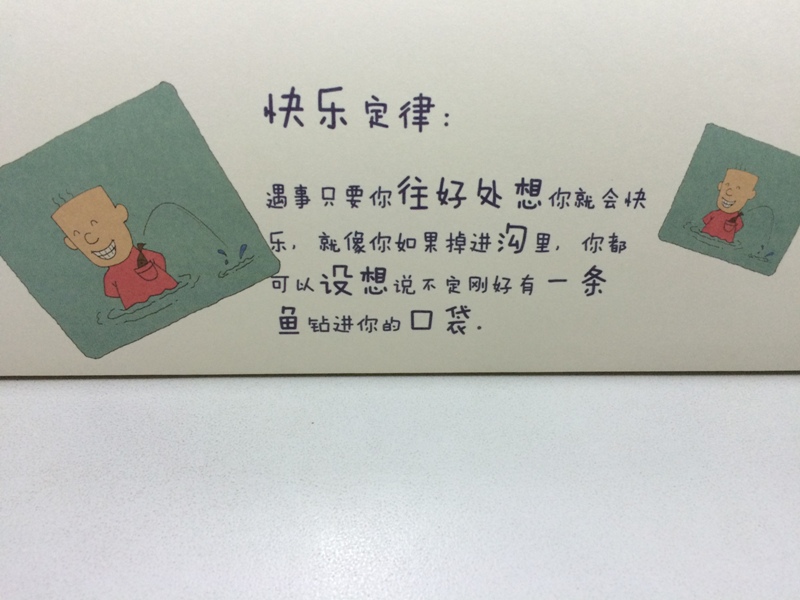 快乐定律：
遇事只要你往好处想你就会快
乐，就像你如果掉进沟里，你都
可以设想说不定刚好有一条
鱼钻进你的口袋.